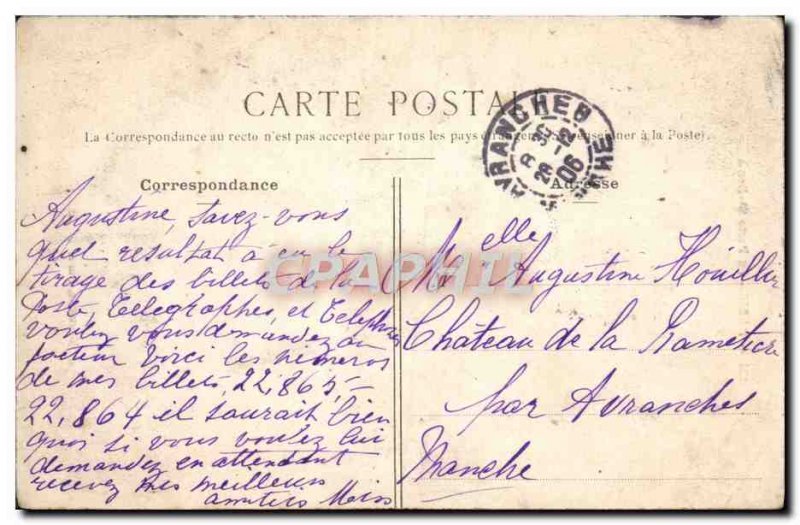 CARTE POSTALE
La Correspondance au recto n'est pas acceptée par tous les pays étrangers (Se renseigner à la Poste).
AVRANCHES
MANCHE
28
06
Correspondance
Adresse
Augustine, savez-vous
quel resultat à eu le
tirage des billets de la
Poste, Telegraphes, et Telephones
voulez vous demandez au
facteur voici les numeros
de mes billets, 22,865 -
22,864 il saurait bien
quoi si vous voulez lui
demandez en attendant
recevez mes meilleurs
amitiés
Melle Augustine Houillier
Château de la
par Avranches
Manche
CPAPHIL